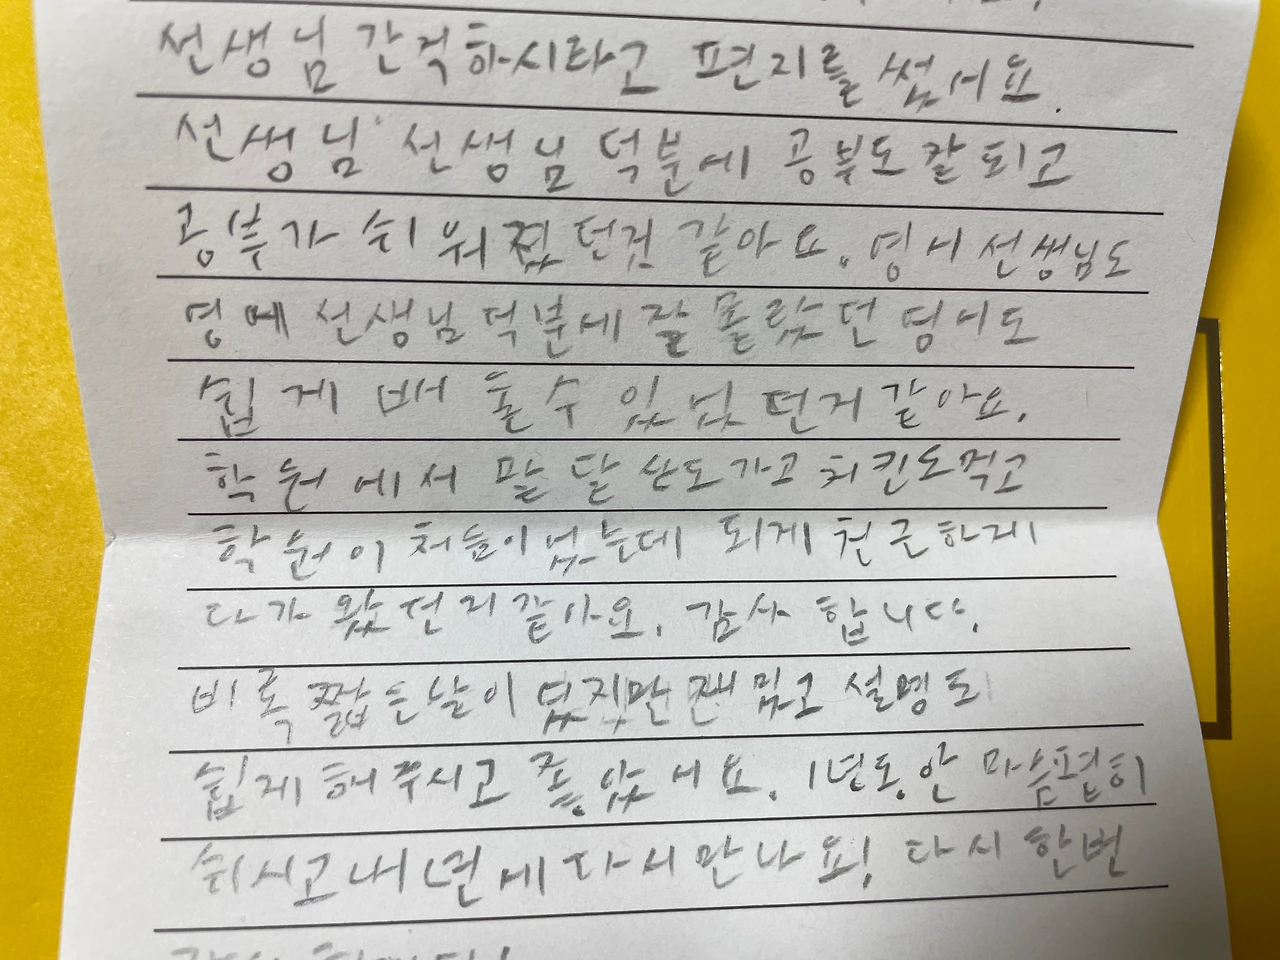 선생님 간직하시라고 편지를 썼서요.
선생님 선생님 덕분에 공부도 잘 되고
공부가 쉬워졌던것 같아요. 영어 선생님도
영어 선생님 덕분에 잘 몰랐던 영어도
쉽게 배울수 있었던거 같아요.
학원에서 말달산도가고 치킨도먹고
학원이 처음이었는데 되게 친근하게
다가 왔던거같아요. 감사 합니다.
비록 짧은날이 었지만 재밌고 설명도
쉽게 해주시고 좋았서요. 1년동안 마음편히
쉬시고 내년에 다시만나요! 다시 한번